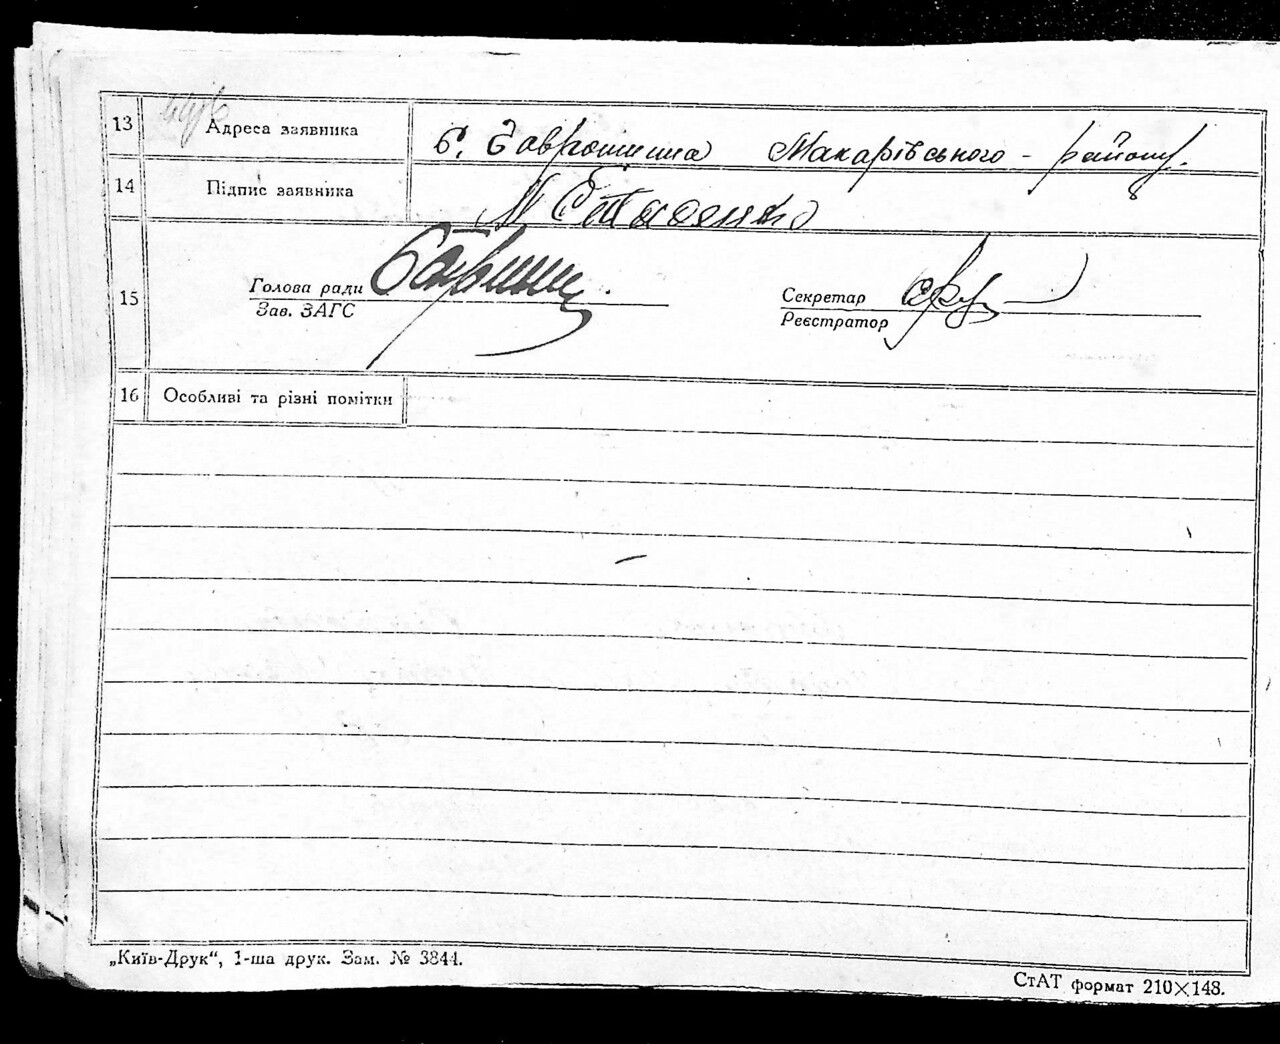 13 Адреса заявника с. Гавронщина Макарівського - району.
14 Підпис заявника
15 Голова ради
Зав. ЗАГС
Секретар
Реєстратор
16 Особливі та різні помітки
„Київ-Друк“, 1-ша друк. Зам. № 3844.
СтАТ формат 210×148.